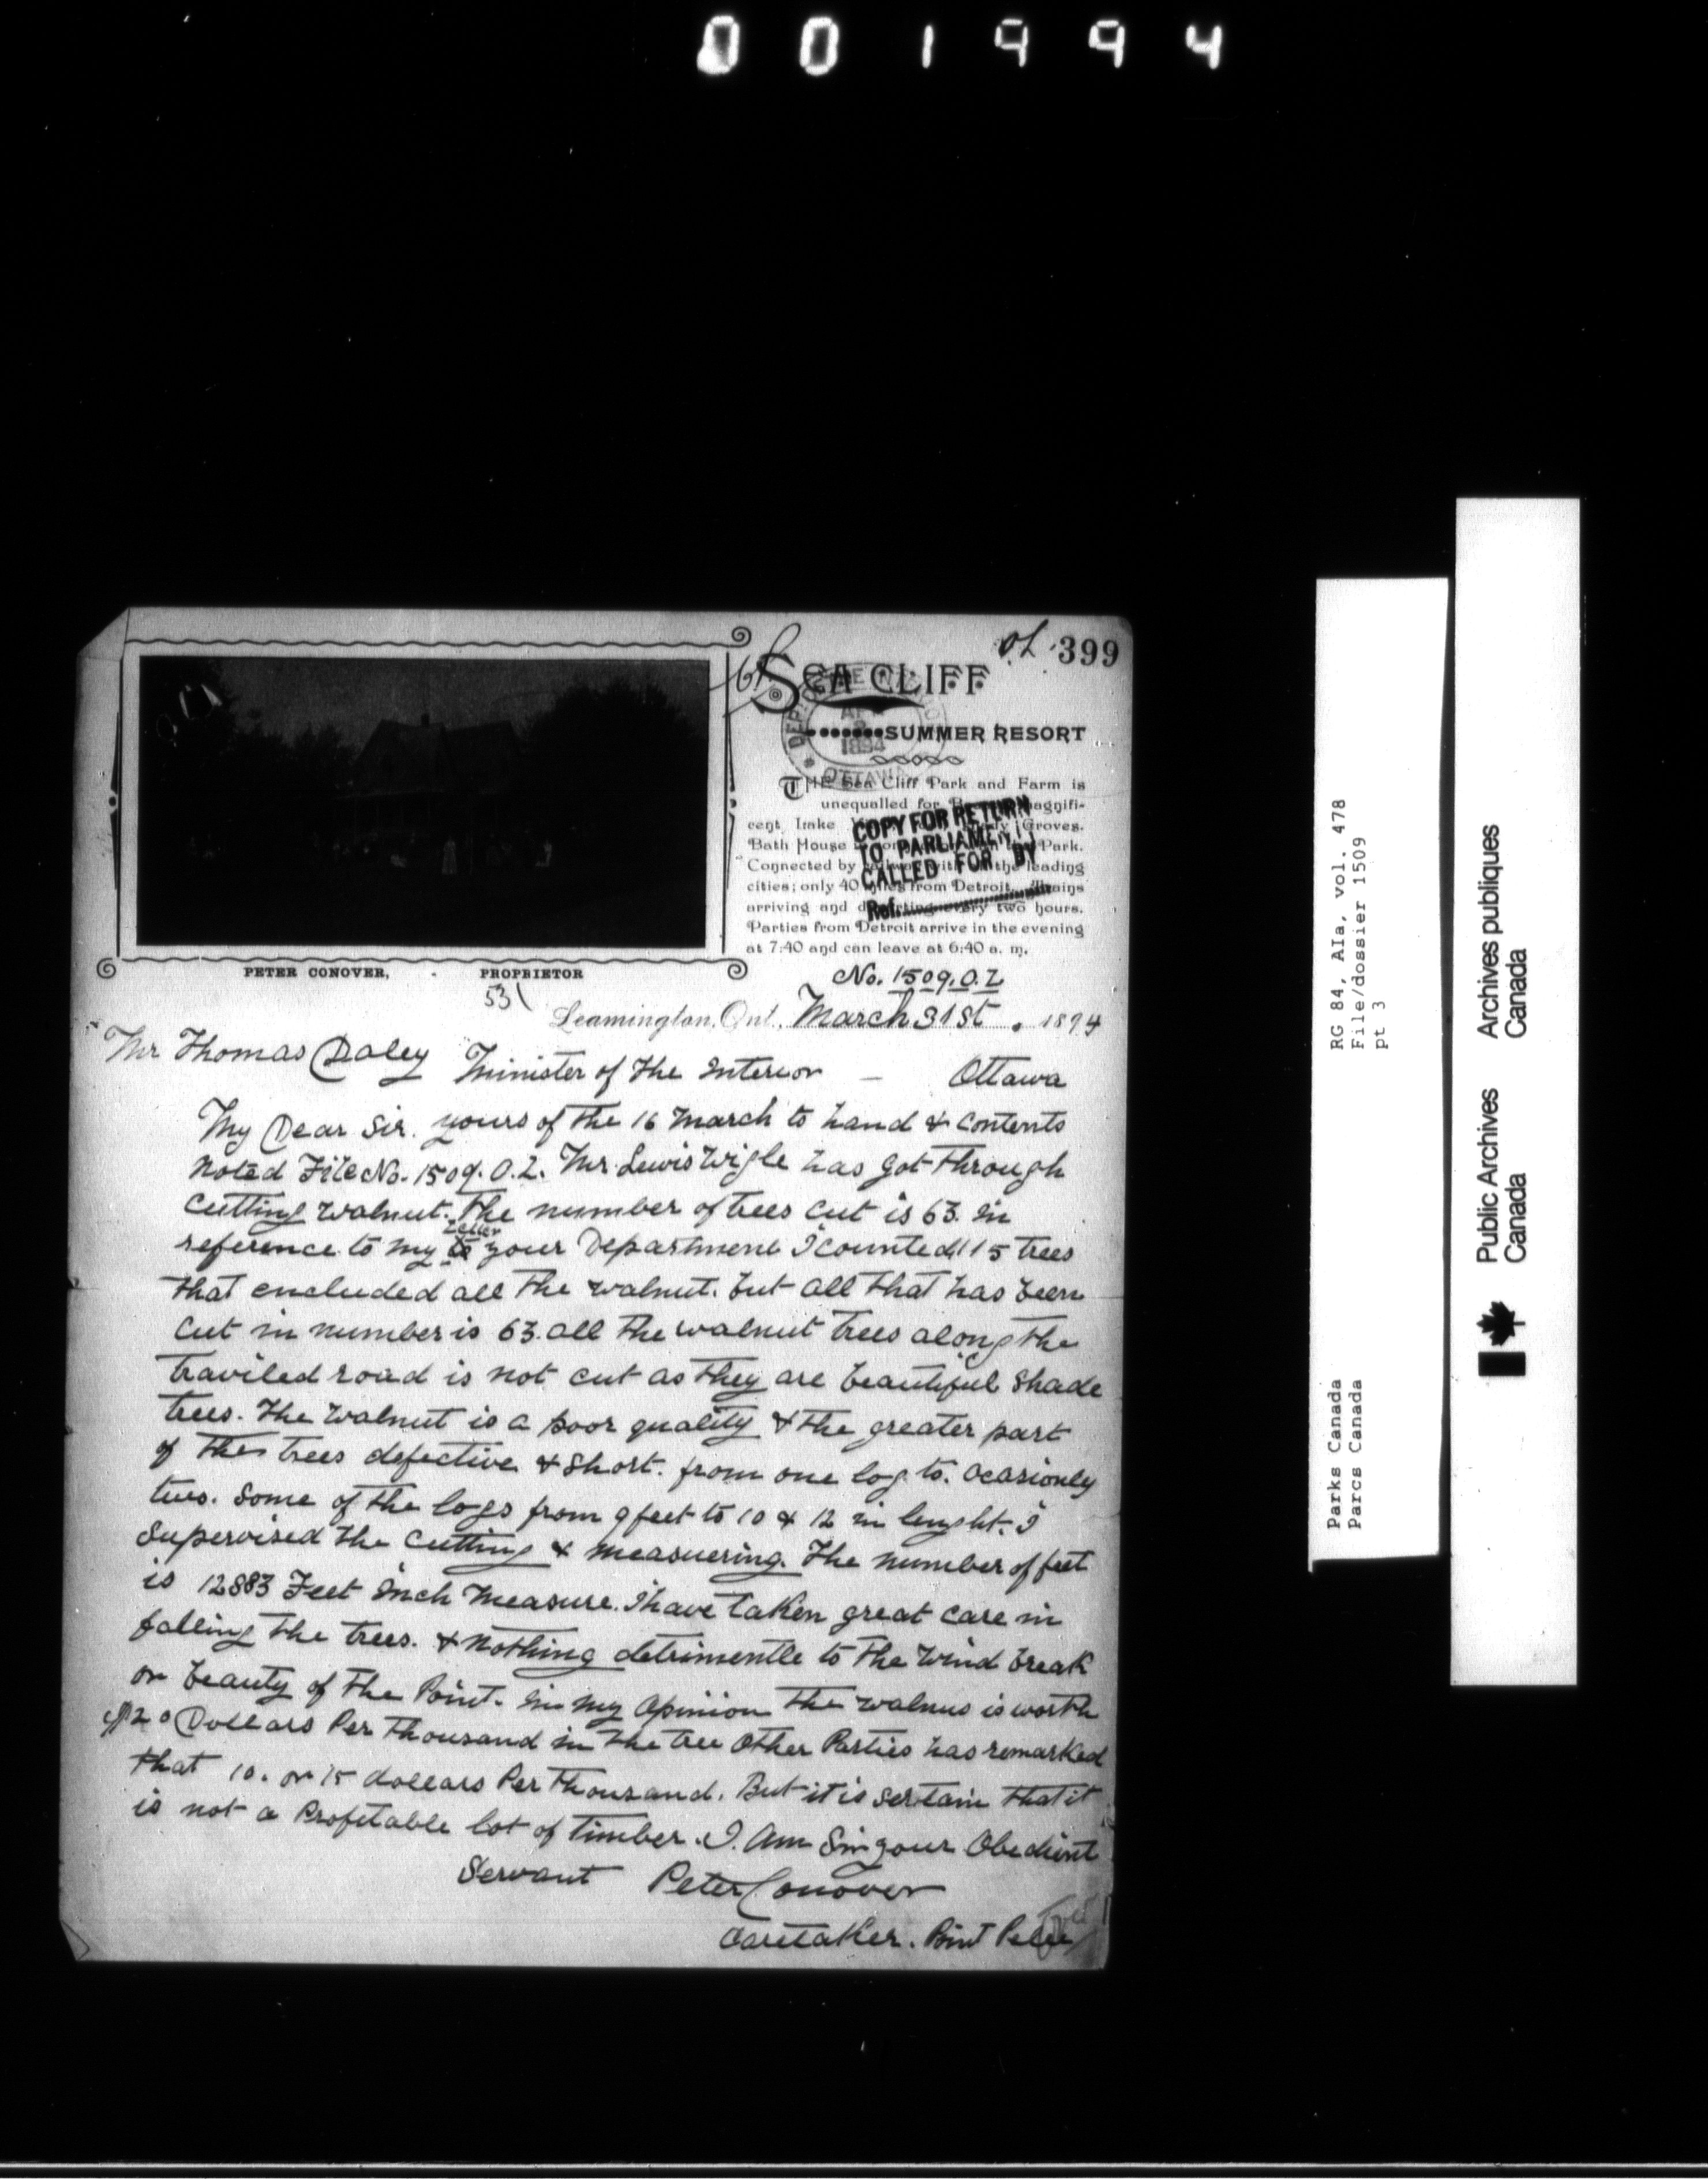 001994
OL 399
SEA CLIFF
SUMMER RESORT
DEPT OF THE INTERIOR
AP 2
1894
OTTAWA
THE Sea Cliff Park and Farm is
unequalled for magnifi-
cent Lake Groves.
Bath House Park.
Connected by railway with the leading
cities; only 40 miles from Detroit. Trains
arriving and departing every two hours.
Parties from Detroit arrive in the evening
at 7:40 and can leave at 6:40 a. m.
COPY FOR RETURN
TO PARLIAMENT
CALLED FOR BY
Ref.
PETER CONOVER, - PROPRIETOR
531
No. 1509.O.L
Leamington, Ont., March 31st. 1894
Mr Thomas Daley Minister of the Interior – Ottawa
My Dear Sir. yours of the 16 March to hand & contents
noted File No. 1509. O.L. Mr. Lewis Wigle has got through
cutting walnut. The number of trees cut is 63. in
reference to my letter to your Department I counted 115 trees
that encluded all the walnut. but all that has been
cut in number is 63. all the walnut trees along the
traviled road is not cut as they are beautiful shade
trees. The walnut is a poor quality & the greater part
of the trees defective & short. from one log to. ocasionly
two. some of the logs from 9 feet to 10 & 12 in lenght. I
supervised the cutting & measuering. The number of feet
is 12883 Feet inch measure. I have taken great care in
falling the trees. & nothing detrimentle to the wind break
or beauty of the Point. in my opinion the walnus is worth
$20 Dollars Per thousand in the tree Other Parties has remarked
that 10. or 15 dollars Per thousand. But it is sertain that it
is not a Profitable lot of timber. I. am Sir your Obedient
Servant Peter Conover
Caretaker. Point Pelee
RG 84, AIa, vol. 478
File/dossier 1509
pt 3
Parks Canada
Parcs Canada
Public Archives Archives publiques
Canada Canada